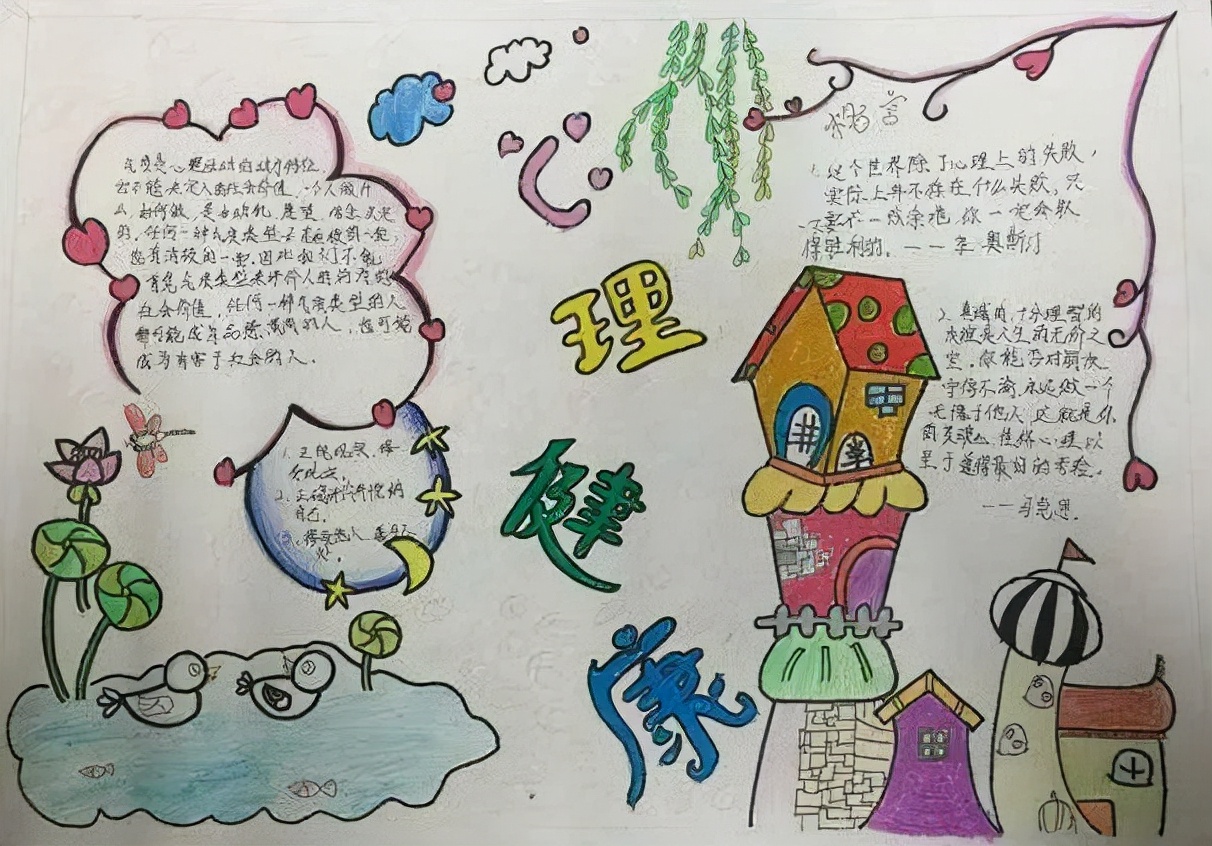 心
理
健
康
气质是心理活动的动力特征,
它不能决定人的社会价值,一个人做什
么,如何做,是由动机、愿望、信念决定
的,任何一种气质类型
也有消极的一面,因此我们不能
气质类型来评价人的
社会价值,任何一种气质类型的人
都可能成为品德高尚的人,也可能
成为有害于社会的人.
1.正视现实,
2.正确评价
自己.
3.
格言
1.这个世界除了心理上的失败,
实际上并不存在什么失败,只
要不一败涂地,你一定会取
得胜利的.——奥斯汀
2.真诚的,十分理智的
友谊是人生的无价之
宝.你能否对朋友
守信不渝,永远做一个
无愧于他人,这就是你
心理以
至于道德最好的考验.
——马克思.